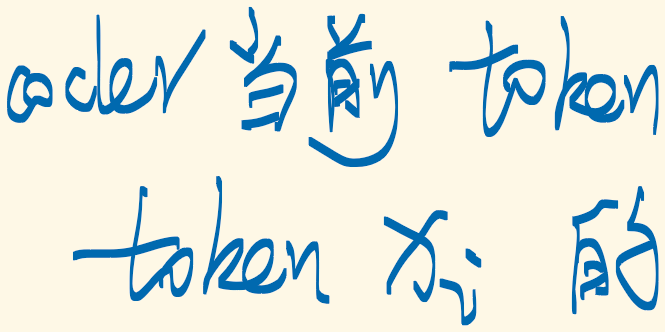 coder 当前 token
token xᵢ 的